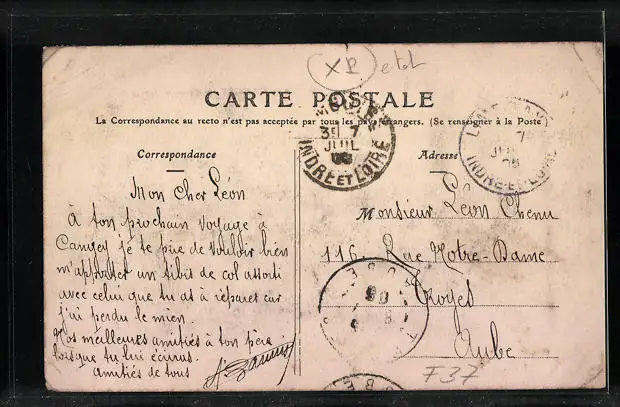 XP etol
CARTE POSTALE
La Correspondance au recto n'est pas acceptée par tous les pays étrangers. (Se renseigner à la Poste)
3E 7
JUIL
INDRE ET LOIRE
7
INDRE-ET-LOIRE
Correspondance
Adresse
Mon Cher Léon
À ton prochain voyage à
Cangey je te prie de vouloir bien
m'apporter un bibit de col assorti
avec celui que tu as à réparer car
j'ai perdu le mien
Mes meilleures amitiés à ton père
lorsque tu lui écriras.
amitiés de tous
Monsieur Léon Chenu
116 Rue Notre-Dame
Troyes
Aube
F37